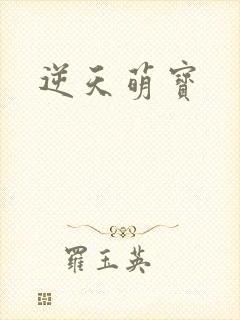 逆天萌寶
羅玉英